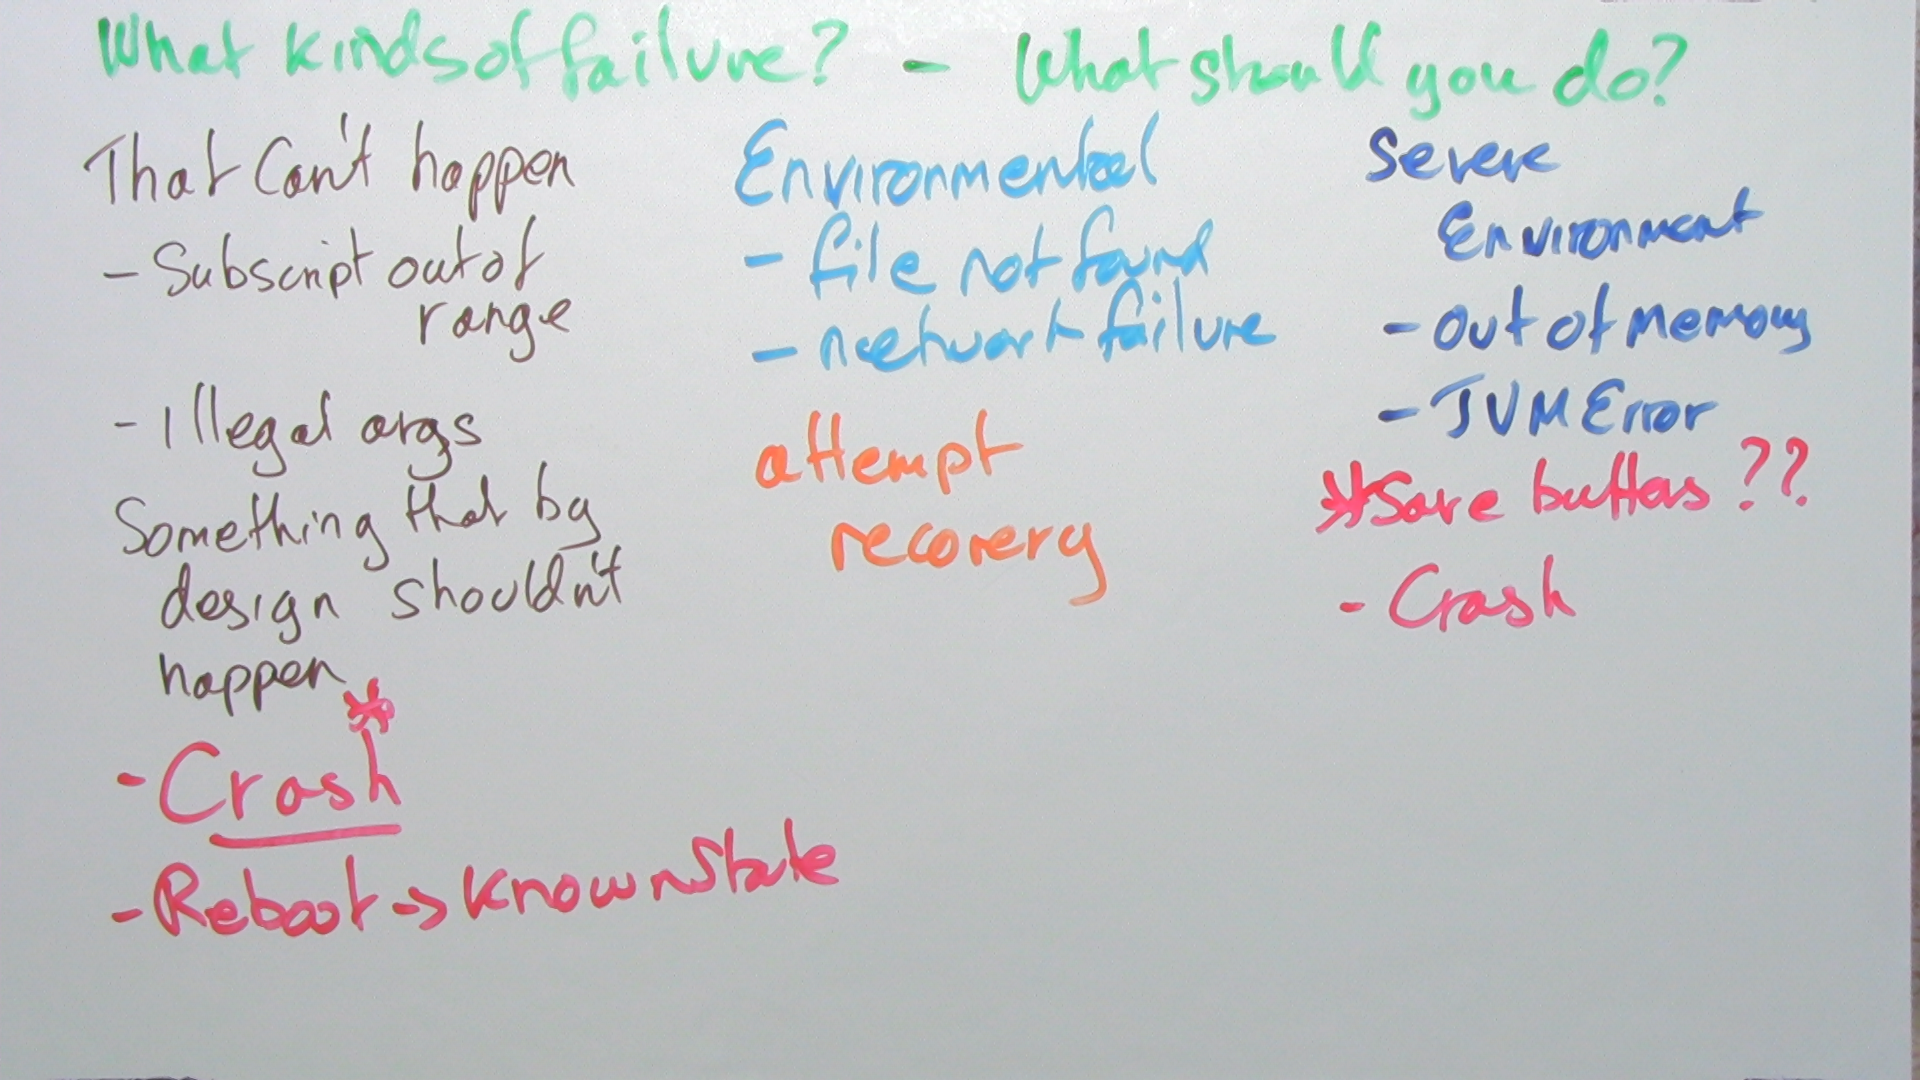 What kinds of failure? - What should you do?
That Can't happen
- Subscript out of
range
- Illegal args
Something that by
design shouldn't
happen
- Crash *
- Reboot -> Known State
Environmental
- file not found
- network failure
attempt
recovery
Severe
Environment
- Out of memory
- JVM Error
* Save buffers ??
- Crash